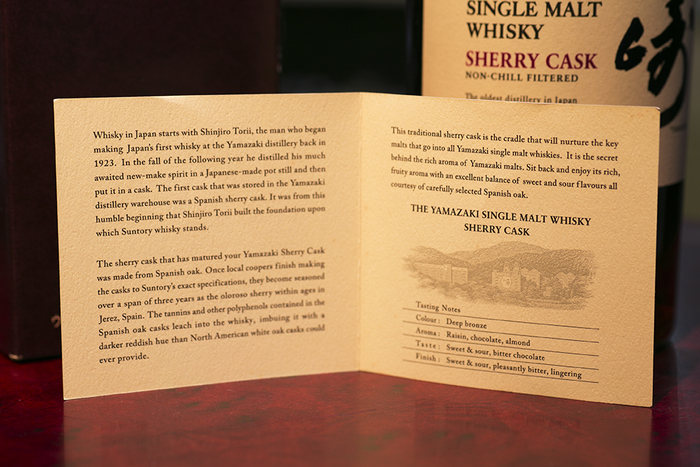 SINGLE MALT
WHISKY
SHERRY CASK
NON-CHILL FILTERED
The oldest distillery in Japan
Whisky in Japan starts with Shinjiro Torii, the man who began
making Japan's first whisky at the Yamazaki distillery back in
1923. In the fall of the following year he distilled his much
awaited new-make spirit in a Japanese-made pot still and then
put it in a cask. The first cask that was stored in the Yamazaki
distillery warehouse was a Spanish sherry cask. It was from this
humble beginning that Shinjiro Torii built the foundation upon
which Suntory whisky stands.
The sherry cask that has matured your Yamazaki Sherry Cask
was made from Spanish oak. Once local coopers finish making
the casks to Suntory's exact specifications, they become seasoned
over a span of three years as the oloroso sherry within ages in
Jerez, Spain. The tannins and other polyphenols contained in the
Spanish oak casks leach into the whisky, imbuing it with a
darker reddish hue than North American white oak casks could
ever provide.
This traditional sherry cask is the cradle that will nurture the key
malts that go into all Yamazaki single malt whiskies. It is the secret
behind the rich aroma of Yamazaki malts. Sit back and enjoy its rich,
fruity aroma with an excellent balance of sweet and sour flavours all
courtesy of carefully selected Spanish oak.
THE YAMAZAKI SINGLE MALT WHISKY
SHERRY CASK
Tasting Notes
Colour : Deep bronze
Aroma : Raisin, chocolate, almond
Taste : Sweet & sour, bitter chocolate
Finish : Sweet & sour, pleasantly bitter, lingering